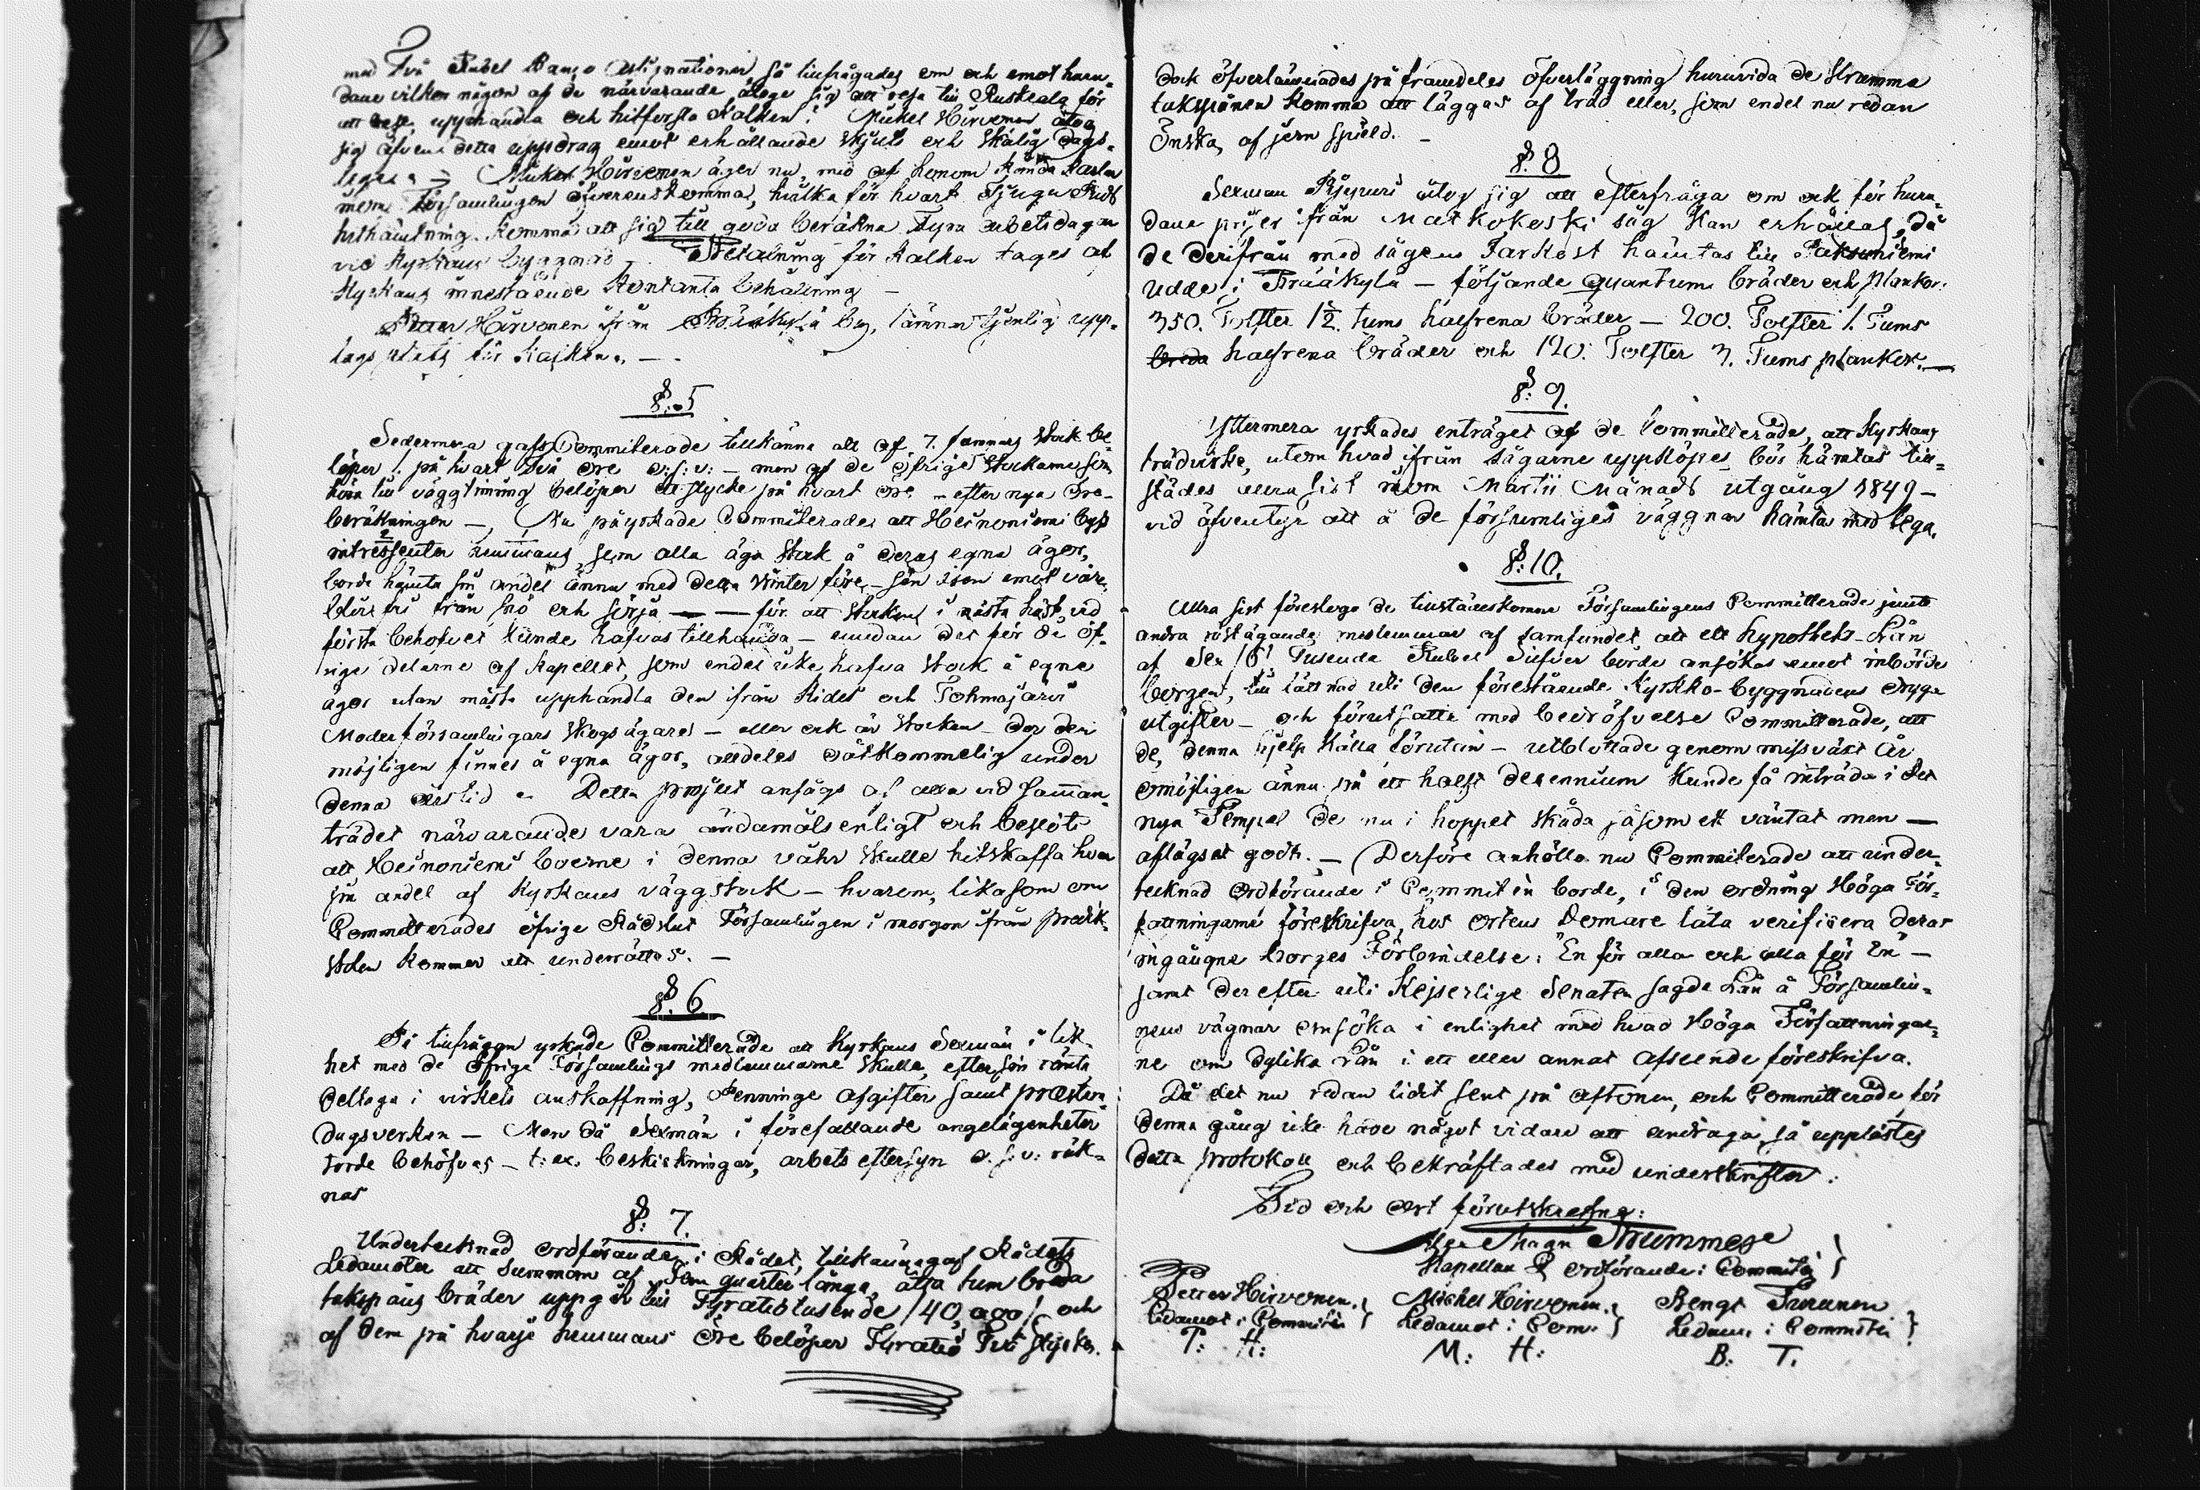 med Två Rubel Banco Assignationer, så tillfrågades om och emot hurudane vilkor någon af de närvarande åtoge sig att resa till Ruskeala för
att upphandla och hitforsla Kalken? Mickel Hirvonen åtog
sig äfven detta uppdrag emot erhållande skjuts och skälig Dags-
lega. Mickel Hirvonen äger nu, med af honom kända Karlar
inom Församlingen öfverenskomma, hvilka för hvart Tjugu Pud
hithämtning komma att sig till godo beräkna Fyra arbetsdagar
vid Kyrkans byggnad. Betalning för kalken tages af
Kyrkans innestående Kontanta behållning —
Petter Hirvonen ifrån Rääkkylä by, lämnar tjenlig upp-
lags plats för Kalken. —
§: 5
Sedermera gafs Committerade tillkänna att af 7. famnars stock be-
löper på hvart Två öre o: s: v: — men af de öfrige Stockarne som
höra till väggtimring belöper ett stycke på hvart öre — efter nya öre-
beräkningen —, Nu påyrkade Committerade att Heinoniemi bys
intressenter hemmans, som alla äga stock å deras egna ägor,
borde hämta sin andel ännu med detta vinter före — sen isen emot våren
blir fri från snö och sörja — — för att stocken i nästa höst vid
första behofvet kunde hafvas tillhanda — emedan det för de öf-
rige delarne af Kapellet, som endel icke hafva stock å egne
ägor utan måste upphandla den ifrån Kides och Tohmajärvi
Moderförsamlingars skogsägare — eller ock är stocken der den
möjligen finnes å egna ägor, alldeles oåtkommelig under
denna årstid. Detta projekt ansågs af alla vid samman-
trädet närvarande vara ändamålsenligt och beslöts
att Heinoniemi boerne i denna våhr skulle hitskaffa hvar
sin andel af Kyrkans väggstock — hvarom, likasom om
Committerades öfrige Rådslut Församlingen i morgon ifrån predik-
stolen kommer att underrättas. —
§. 6.
På tillfrågan yrkade Committerade att Kyrkans Sexmän i lik-
het med de öfrige Församlings medlemmarne skulle, efter sin ränta
deltaga i virkets anskaffning, Penninge afgifter samt præstera
dagsverken — Men då Sexmän i förefallande angelägenheter
torde behöfvas — t: ex. beskickningar, arbets eftersyn o. s. v: räk-
nas
§: 7.
Undertecknad ordförande i Rådet, tillkännagaf Rådets
Ledamöter att summan af Fem quarter långa, åtta tum breda
takspåns bräder uppgår till Fyratiotusende /40,000/ och
af dem på hvarje hemmans Öre belöper Fyratio Två stycken.
dock öfverlämnades på framdeles öfverläggning huruvida de Krumma
takspånen komma att läggas af träd eller, som endel nu redan
önska, af jern spjeld. —
§. 8
Sexman Pyypuri åtog sig att efterfråga om och för huru-
dane priser ifrån Matkokoski såg kan erhållas, då
de derifrån med sågens Farkost hämtas till Paksuniemi
udde i Rääkylä — följande quantum bräder och Plankor.
350. Tolfter 1½. tums halfrena bräder — 200. Tolfter 1. Tums
breda halfrena bräder och 120. Tolfter 3. Tums plankor. —
§: 9.
Yttermera yrkades enträget af de Committerade, att Kyrkans
trädvirke, utom hvad ifrån sågarne uppköpes bör hämtas till-
städes allra sist inom Martii Månads utgång 1849 —
vid äfventyr att å de försumliges väggnar hämta med lega.
§: 10.
Allra sist föreslogo de tillstädeskomne Församlingens Committerade jemte
andra röstägande medlemmar af samfundet att ett hypotheks-Lån
af Sex /6/ Tusende Rubel Silfver borde ansökas emot inbördes
borgen, till lättnad uti den förestående Kyrkko-byggnadens dryga
utgifter — och förutsatte med bedröfvelse Committerade, att
de, denna hjelp källa förutan — utblottade genom missväxt år
omöjligen ännu på ett halft decennium kunde få inträda i det
nya Tempel de nu i hoppet skåda såsom ett väntat men —
aflägset godt. — Derföre anhöllo nu Committerade att under-
tecknad ordförande i Committén borde, i den ordning Höga För-
fattningarne föreskrifva, hos ortens Domare låta verifisera deras
ingångne borges Förbindelse: "En för alla och alla för En" —
samt derefter uti Kejserlige Senaten sagde Lån å Församlin-
gens vägnar ansöka i enlighet med hvad Höga Författningar-
ne om dylika Lån i ett eller annat afseende föreskrifva.
Då det nu redan lidit sent på aftonen, och Committerade för
denna gång icke hade något vidare att andraga, så upplästes
detta protokoll och bekräftades med underskrifter.
Tid och ort förutskrefne:
Magn Strummese
Kapellan & ordförande i Committén }
Petter Hirvonen. Michel Hirvonen. Bengt Turunen
Ledamot i Committén } Ledamot i Com: } Ledam: i Committén }
P: H: M: H: B: T.